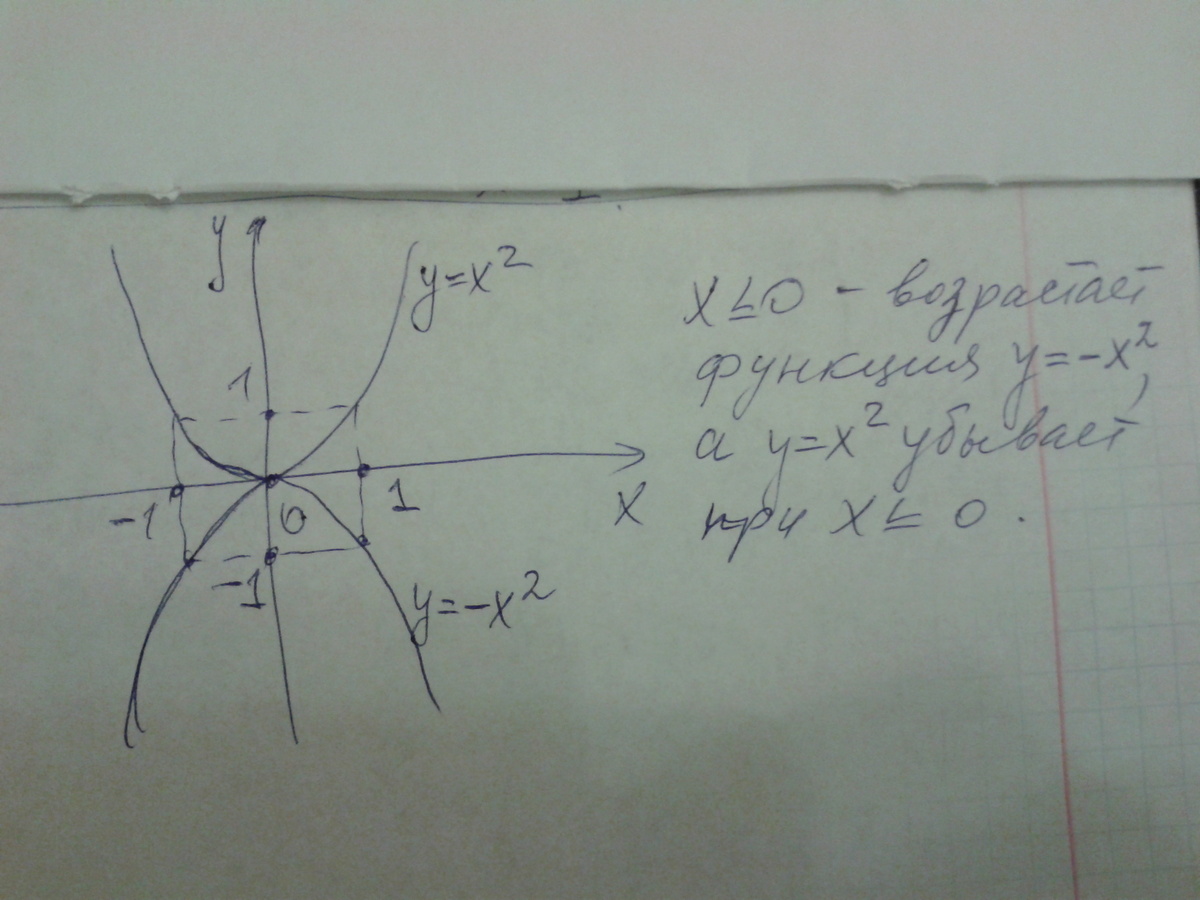 y
y=x²
1
-1
0
1
x
-1
y=-x²
x≤0 - возрастает
функция y=-x²,
а y=x² убывает
при x≤0.